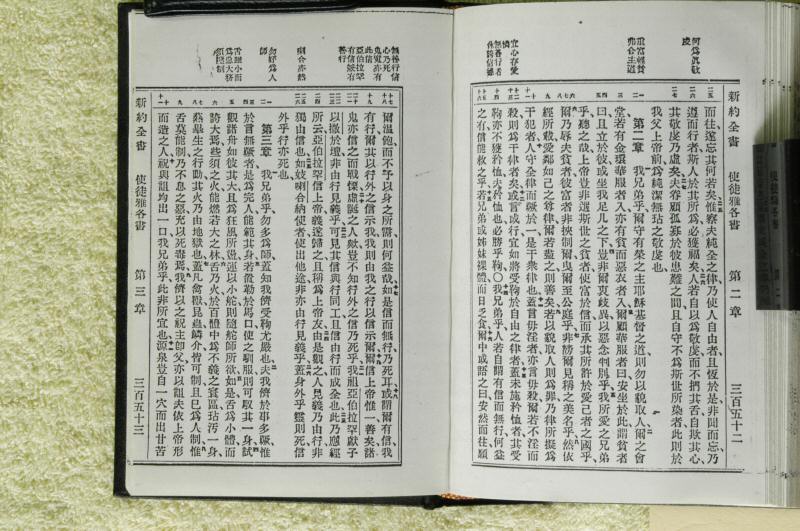 何爲眞敬虔
重富輕貧弗合主道
宜心存愛憐
無善行者休誇信德
新約全書 使徒雅各書 第二章 三百五十二
而往遂忘其何若矣惟察夫純全之律乃使人自由者且恆於是非聞而忘乃
遵而行者斯人於其所爲必獲福矣人若自以爲敬虔而不捫其舌自欺其心
其敬虔乃虛矣夫眷顧孤嫠於彼患難之間且自守不爲斯世所染者此則於
我父上帝前爲純潔無玷之敬虔也
第二章 我兄弟乎爾守有榮之主耶穌基督之道則勿以貌取人爾之會
堂若有金環華服者入亦有貧而惡衣者入爾顧華服者曰安坐於此謂貧者
曰且立於彼或坐我足几之下豈非爾衷歧異以惡念判別乎我所愛之兄弟
乎聽之哉上帝豈非選斯世之貧者使富於信而承其所許於愛己者之國乎
爾乃辱夫貧者彼富者非挾制爾曳爾至公庭乎非謗爾見稱之美名乎然依
經所載愛鄰如己之尊律爾若盡之則善矣若以貌取人則爲罪乃律所擬爲
干犯者人守全律而蹶於一是干衆律也蓋言毋淫者亦言毋殺爾若不淫而
殺則爲干律者矣或言或行宜如將受鞫於自由之律者蓋未施矜恤者其受
鞫亦不獲矜恤夫矜恤也必勝乎鞫〇我兄弟乎人若自謂有信而無行何益
之有信能救之乎若兄弟或姊妹裸體而日乏食爾中或語之曰安然而往願
無善行信心乃死
鬼魔亦有此信
亞伯拉罕有信兼有善行
喇合亦然
勿好爲人師
舌雖小而爲惡大務須控制
爾溫飽而不予以身之所需則何益哉如是信而無行乃死耳或謂爾有信我
有行爾其以行外之信示我我則由我之行以信示爾爾信上帝惟一善矣諸
鬼亦信之而戰慄虛誕之人歟豈不知行外之信乃死乎我祖亞伯拉罕獻子
以撒於壇非由行見義乎可見其信與行同工且信由行而成全也此乃應經
所云亞伯拉罕信上帝義遂歸之且稱爲上帝友由是觀之人見義乃由行非
獨由信也如妓喇合納使者使出他途非亦由行見義乎蓋身外乎靈則死信
外乎行亦死也
第三章 我兄弟乎勿多爲師蓋知我儕受鞫尤嚴也夫我儕於事多蹶惟
於言無蹶者是爲完人能箝其身若嚼勒於馬口使之馴服則可馭其一身試
觀諸舟如彼其大且爲狂風所盪運以小舵則隨舵師所欲如是舌爲小體而
誇大焉些須之火能燃若大之林舌乃火於百體中爲不義之寰區玷污一身
燬畢生之行動其火乃由地獄也蓋凡禽獸昆蟲鱗介皆可制且已爲人制惟
舌莫能制乃不息之惡充以死毒焉我儕以之祝主卽父亦以詛夫依上帝形
而造之人祝與詛均出一口我兄弟乎此非所宜也源泉豈自一穴而出甘苦
新約全書 使徒雅各書 第三章 三百五十三